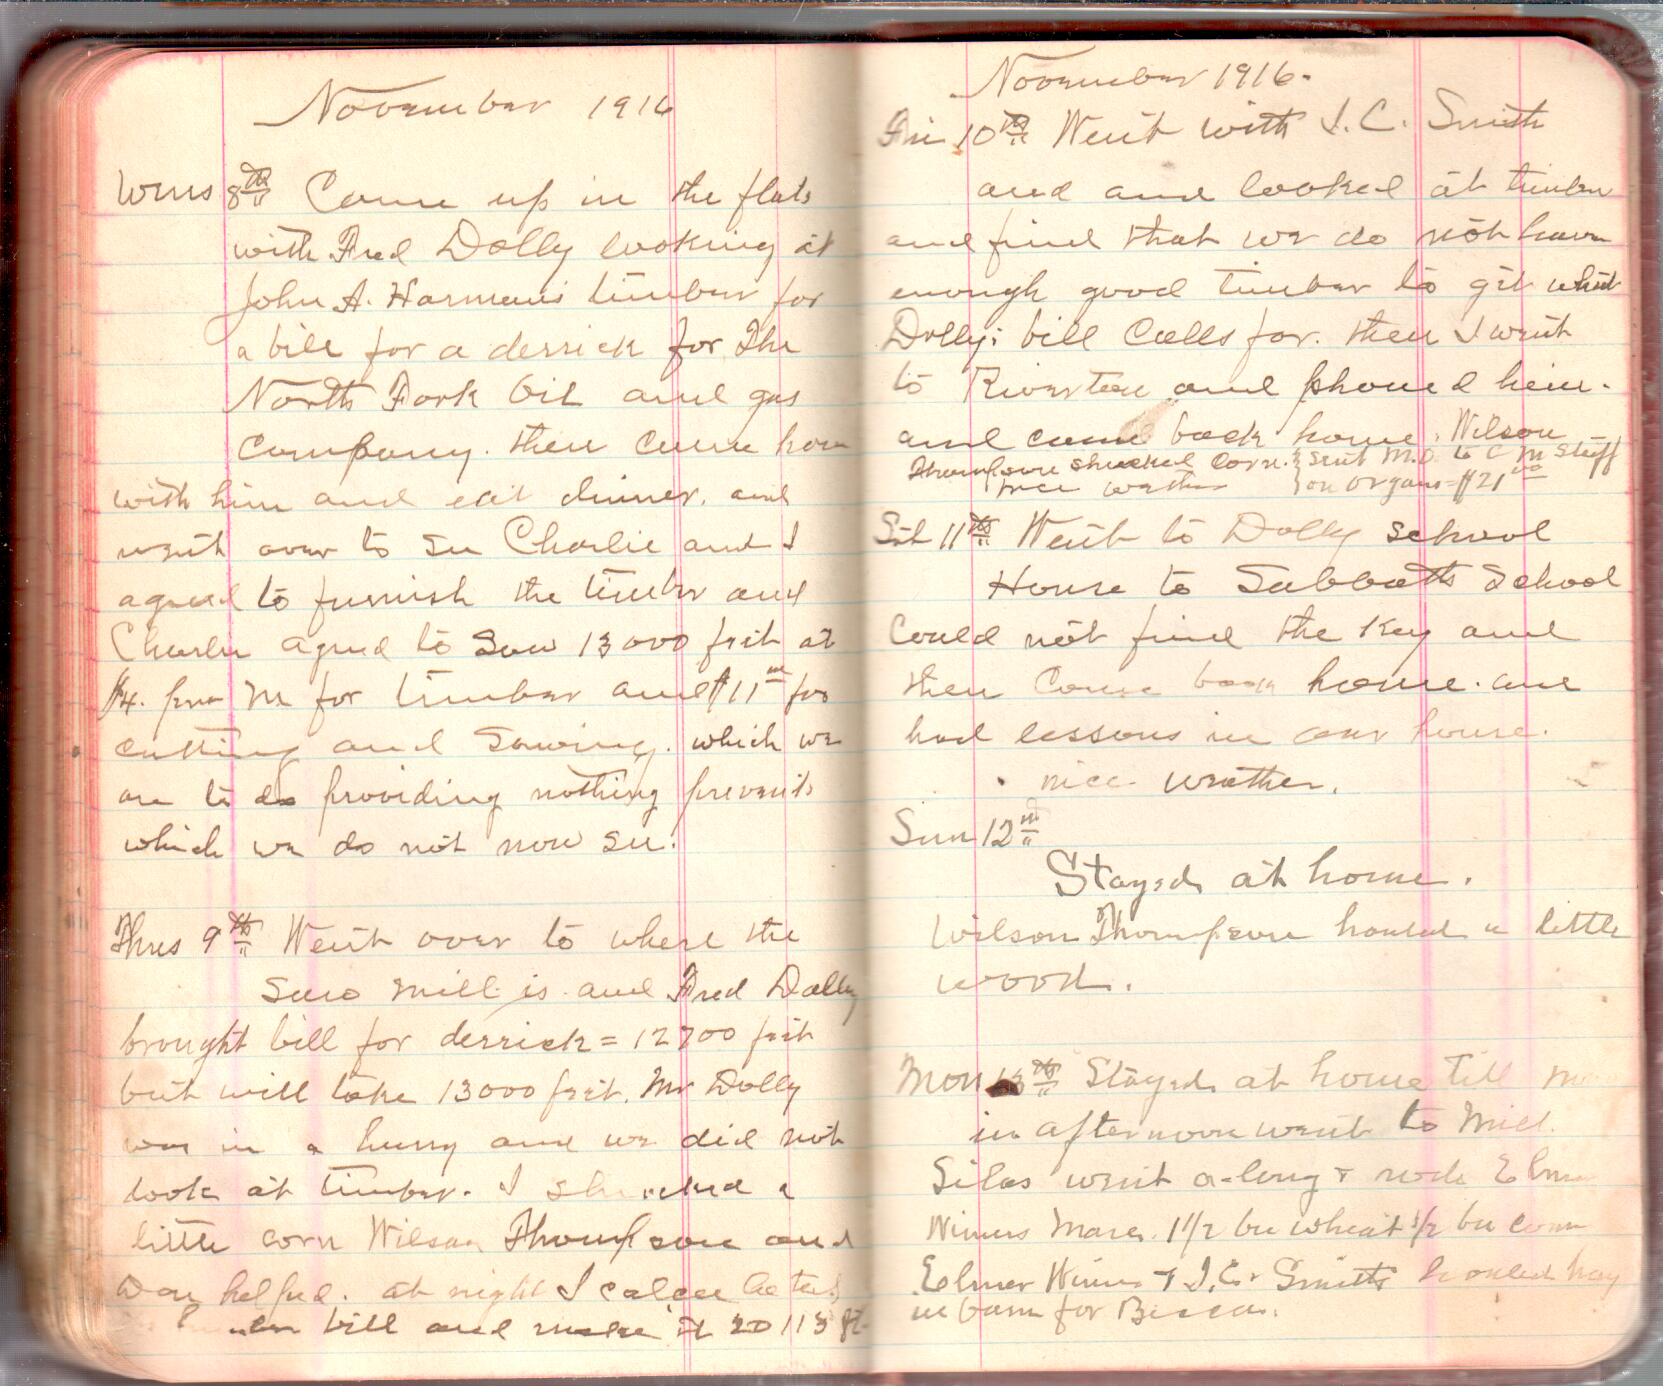 November 1916
Wens 8th Came up in the flats
with Fred Dolly looking at
John A. Harman's timber for
a bill for a derrick for The
North Fork Oil and gas
Company. then came hom
with him and eat dinner. and
went over to see Charlie and I
agreed to furnish the timber and
Charlie agreed to Saw 13000 feet at
$4. per M for timber and $11 00 for
cutting and Sawing. which we
are to do providing nothing prevents
which we do not now see.
Thurs 9th Went over to where the
Saw Mill is and Fred Dolly
brought bill for derrick = 12700 feet
but will take 13000 feet. Mr Dolly
was in a hurry and we did not
look at timber. I shucked a
little corn Wilson Thompson and
Don helped. at night I
bill and make it 20113 ft
November 1916.
Fri 10th Went with I. C. Smith
and and looked at timber
and find that we do not have
enough good timber to git what
Dolly's bill Calls for. then I went
to Riverton and phoned him.
and came back home. Wilson
Thompson shucked Corn. Sent M.O. to C M Stuff
nice wether on Organs = $21 00
Sat 11th Went to Dolly School
House to Sabbath School
Could not find the Key and
then Come back home. and
had lessons in our house.
nice weather.
Sun 12th
Stayed at home.
Wilson Thompson hauled a little
wood.
Mon 13th Stayed at home till
in afternoon went to Mill.
Silas went a-long & rode Elmer
Nimers Mare. 1 1/2 bu wheat 1/2 bu corn
Elmer & I. C. Smith hauled hay
in barn for